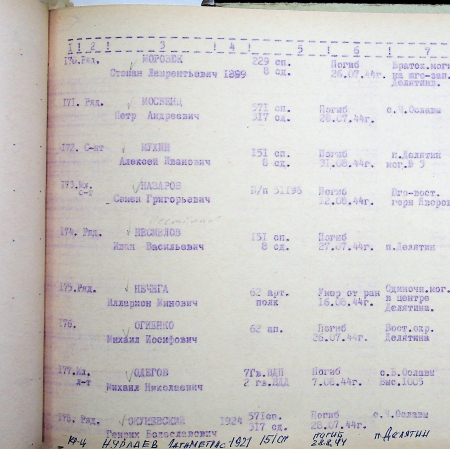 1 1 2 1 3 1 4 1 5 1 6 1 7
170. Ряд. МОРОЗЮК 229 сп. Погиб Братск.мог
Степан Лаврентьевич 1899 8 сд. 26.07.44г. на юго-зап.
Делятина.
171. Ряд. МОСКВИЦ 571 сп. Погиб с.Ч.Ославы
Петр Андреевич 317 сд. 28.07.44г.
172. С-нт МУХИН 151 сп. Погиб п.Делятин
Алексей Иванович 8 сд. 31.08.44г. мог.№ 3
173. Мл. НАЗАРОВ П/п 31198 Погиб Юго-вост.
Семен Григорьевич 12.08.44г. горы Яворо
174. Ряд. НЕСМЕЛОВ 151 сп. Погиб
Иван Васильевич 8 сд. 27.07.44г. п.Делятин
175. Ряд. НЕЧЕГА 62 арт. Умер от ран Одиночн.мог.
Илларион Минович полк 16.08.44г. в центре
Делятина.
176. ОГИЕНКО 62 ап. Погиб Вост.окр.
Михаил Иосифович 26.07.44г. Делятина
177. Мл. ОДЕГОВ 7Гв.ВДП Погиб с.Б.Ославы
л-т Михаил Николаевич 2 гв.ВДД 7.08.44г. Выс.1005
178. Ряд. ОКУЛЕВСКИЙ 1924 571сп. Погиб с.Ч.Ославы
Генрих Болеславович 317 сд. 28.07.44г.
НУРЛАЕВ 1921 151 сп погиб п.Делятин